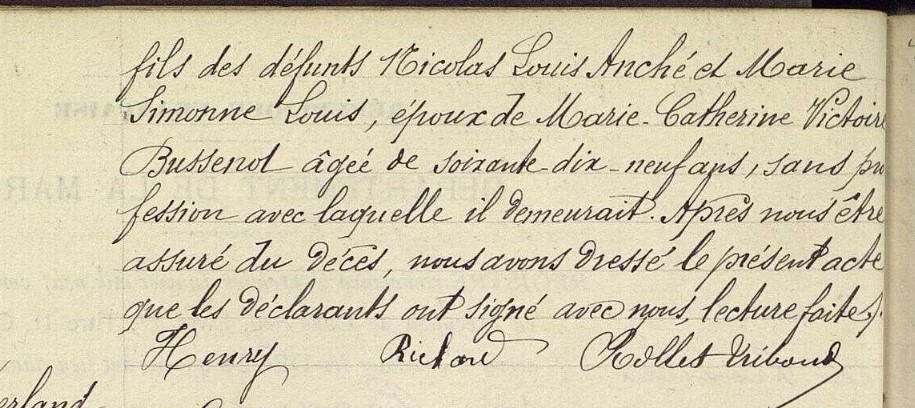 fils des défunts Nicolas Louis Anché et Marie
Simonne Louis, époux de Marie-Catherine Victoire
Bussenot âgée de soixante-dix-neuf ans, sans pro
fession avec laquelle il demeurait. Après nous être
assuré du décès, nous avons dressé le présent acte
que les déclarants ont signé avec nous, lecture faite.
Henry Richard Rollet
erland